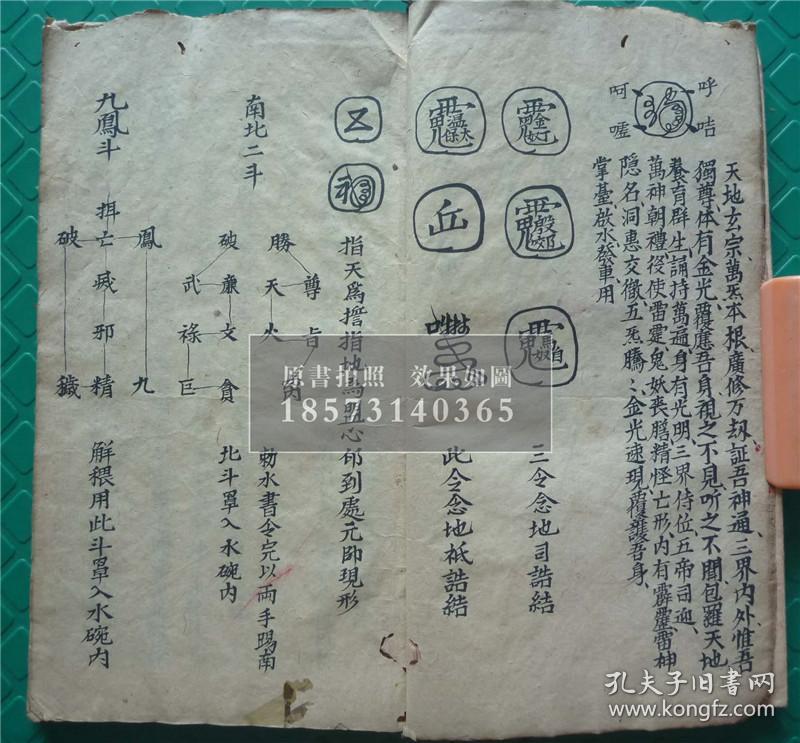 呼咭
呵㘉
天地玄宗萬炁本根廣修万刼証吾神通三界内外惟吾
獨尊体有金光覆應吾身視之不見听之不聞包羅天地
養育群生誦持萬遍身有光明三界侍位五帝司迎
萬神朝禮役使雷霆鬼妖喪膽精怪亡形内有霹靂雷神
隐名洞惠交徹五炁騰〻金光速現覆護吾身
掌臺啟水發車用
三令念地司誥結
此令念地祇誥結
指天爲
指地爲盟心
到處元帥現形
南北二斗
勝
尊
天
火
破
廉
文
貪
武
祿
巨
勅水書令完以兩手踢南
北斗罩入水碗内
九鳳斗
鳳
九
亡
滅
邪
精
破
穢
解穢用此斗罩入水碗内
原書拍照 效果如圖
18573140365
孔夫子旧書网
www.kongfz.com